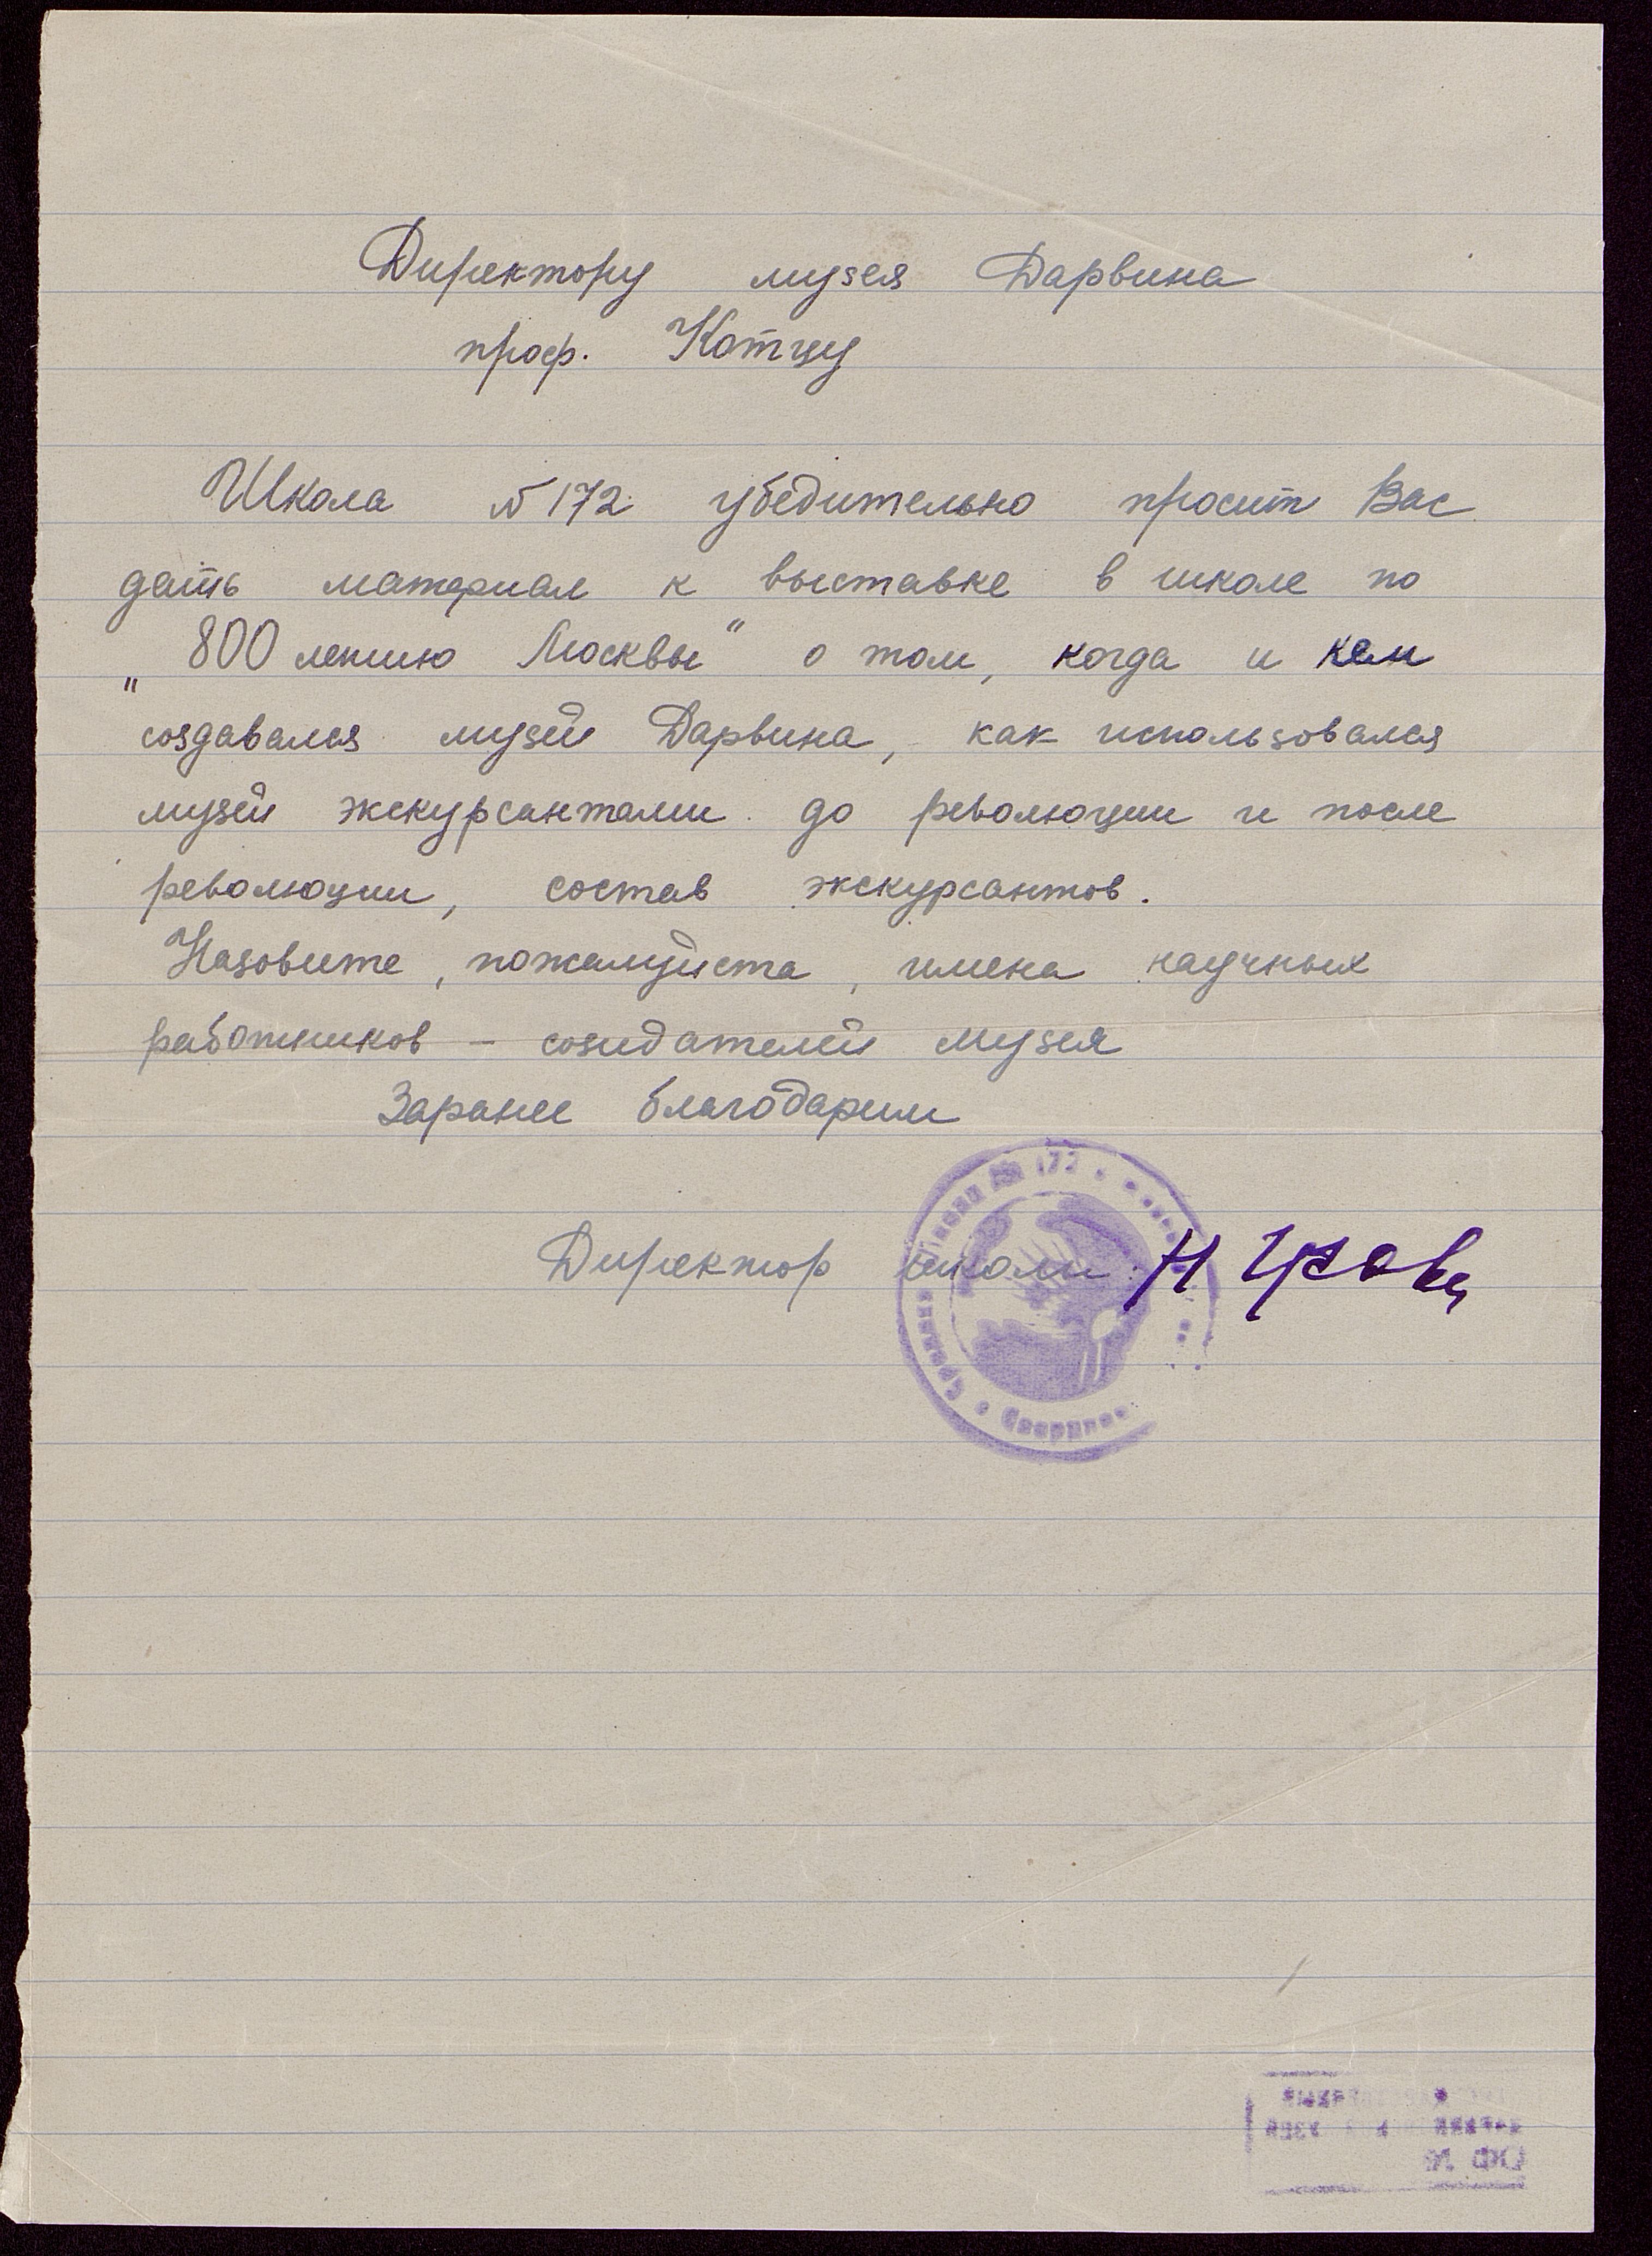 Директору музея Дарвина
проф. Котцу
Школа № 172 убедительно просит Вас
дать материал к выставке в школе по
„800 летию Москвы" о том, когда и кем
создавался музей Дарвина, как использовался
музей экскурсантами до революции и после
революции, состав экскурсантов.
Назовите, пожалуйста, имена научных
работников – созидателей музея
Заранее благодарим
Директор школы Н
№ 172